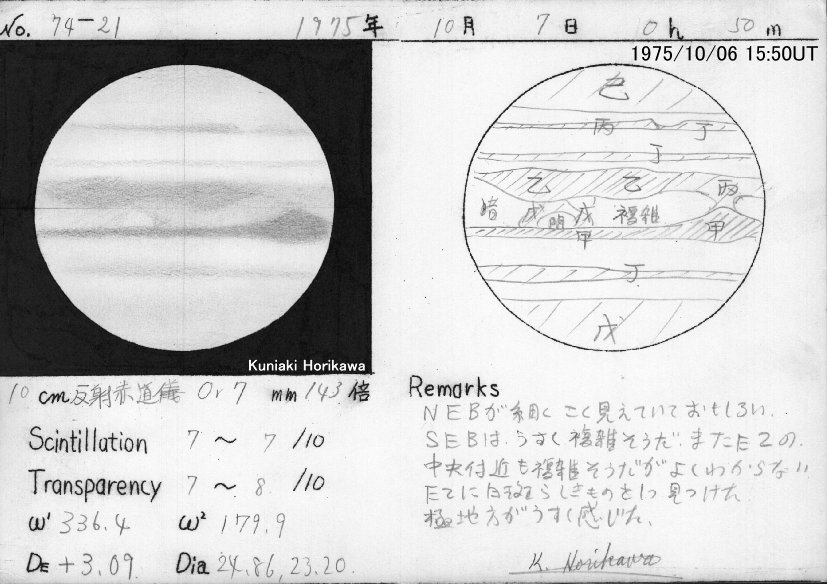 No. 74-21 1975年 10月 7日 0h 50m
1975/10/06 15:50UT
色
丙 丁
丁
乙 乙 丙
暗 戊 明 戊 複雑 甲
甲
丁
戊
Kuniaki Horikawa
10 cm 反射赤道儀 Or 7 mm 143 倍
Scintillation 7 ~ 7 /10
Transparency 7 ~ 8 /10
ω¹ 336.4 ω² 179.9
DE +3.09 Dia 24.86, 23.20
Remarks
NEBが細く こく見えていておもしろい.
SEBは、うすく複雑そうだ. またEZの.
中央付近も複雑そうだがよくわからない
見つけた.
極地方がうすく感じた.
K. Horikawa